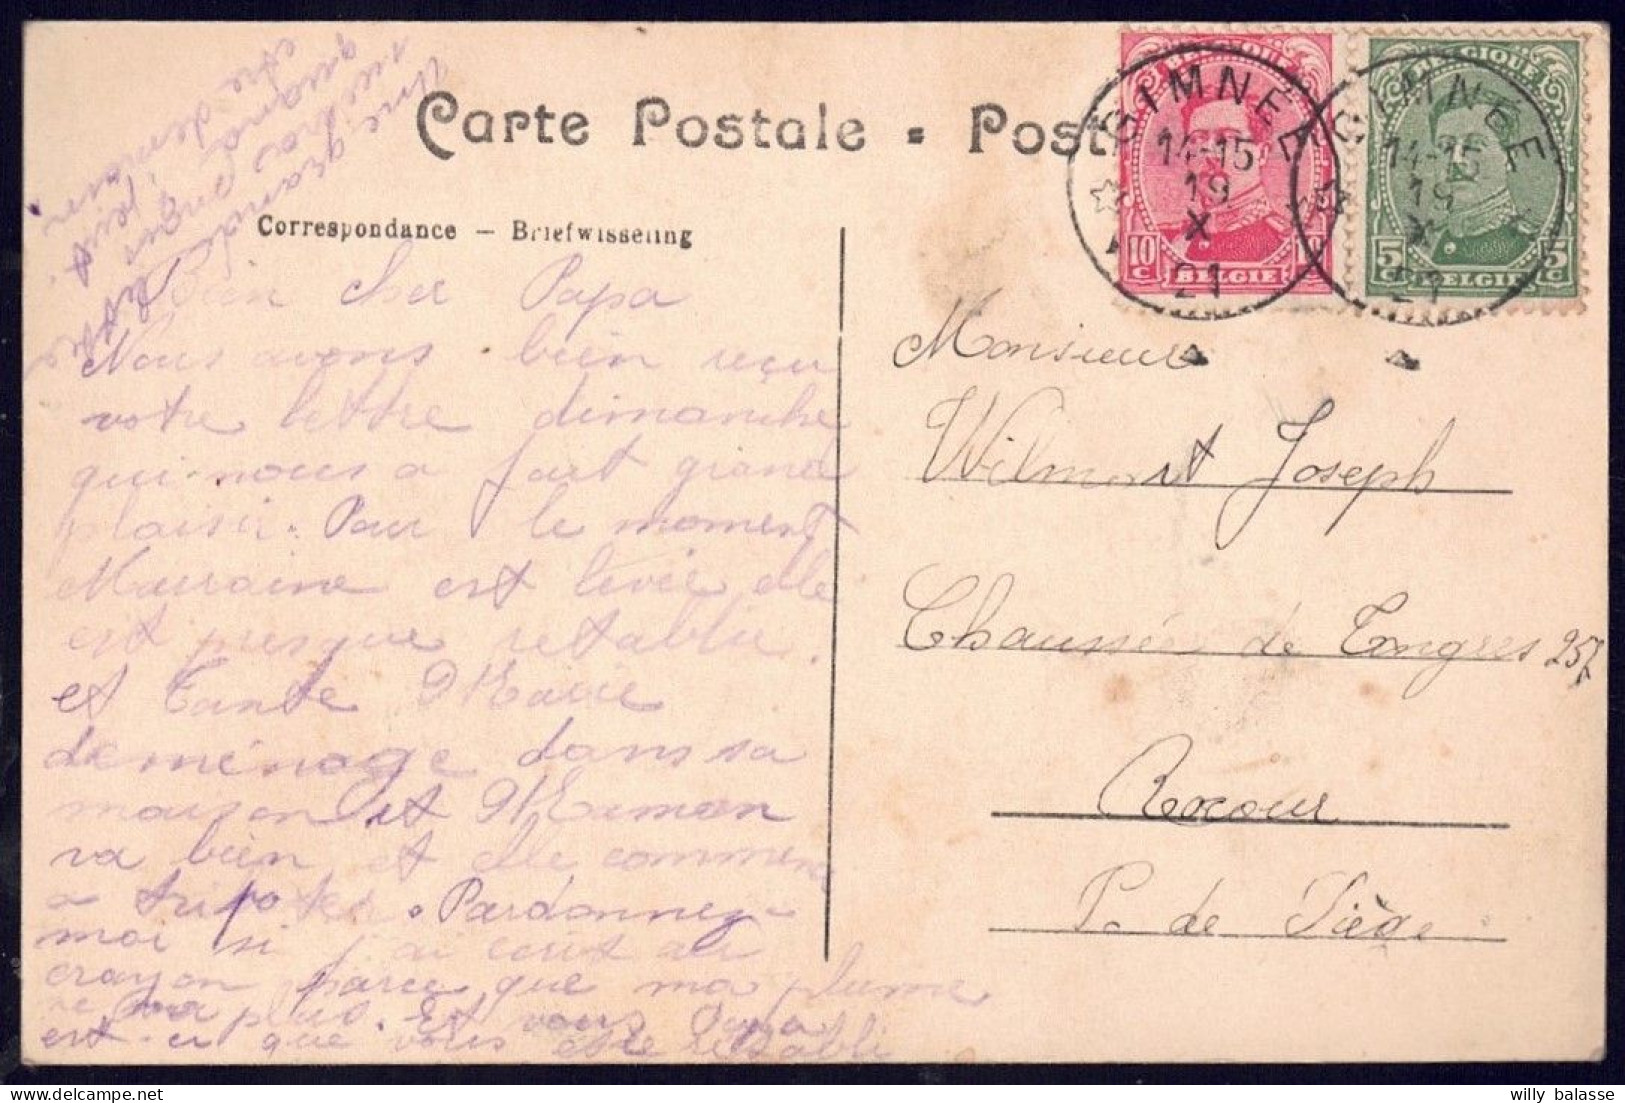 Carte Postale - Post
Correspondance — Briefwisseling
Bien cher Papa
Nous avons bien reçu
votre lettre dimanche
qui nous a fait grand
plaisir. Pour le moment
Marraine est levée elle
est presque rétablie.
et Tante Marie
deménage dans sa
maison et
va bien et elle commence
a tripoter. Pardonnez-
moi si j'ai écrit au
crayon parce que ma plume
ne va plus. Et vous Papa
est-ce que vous etre rétabli
Une grande
quand
peut
etre demain
BELGIQUE
10 C
BELGIE
BELGIQUE
5 C 5 C
BELGIE
GIMNÉE
14-15
19
X
21
GIMNÉE
14-15
19
X
21
Monsieur
Wilmart Joseph
Chaussée de Tongres 257
Rocour
P. de Liège
willy balasse